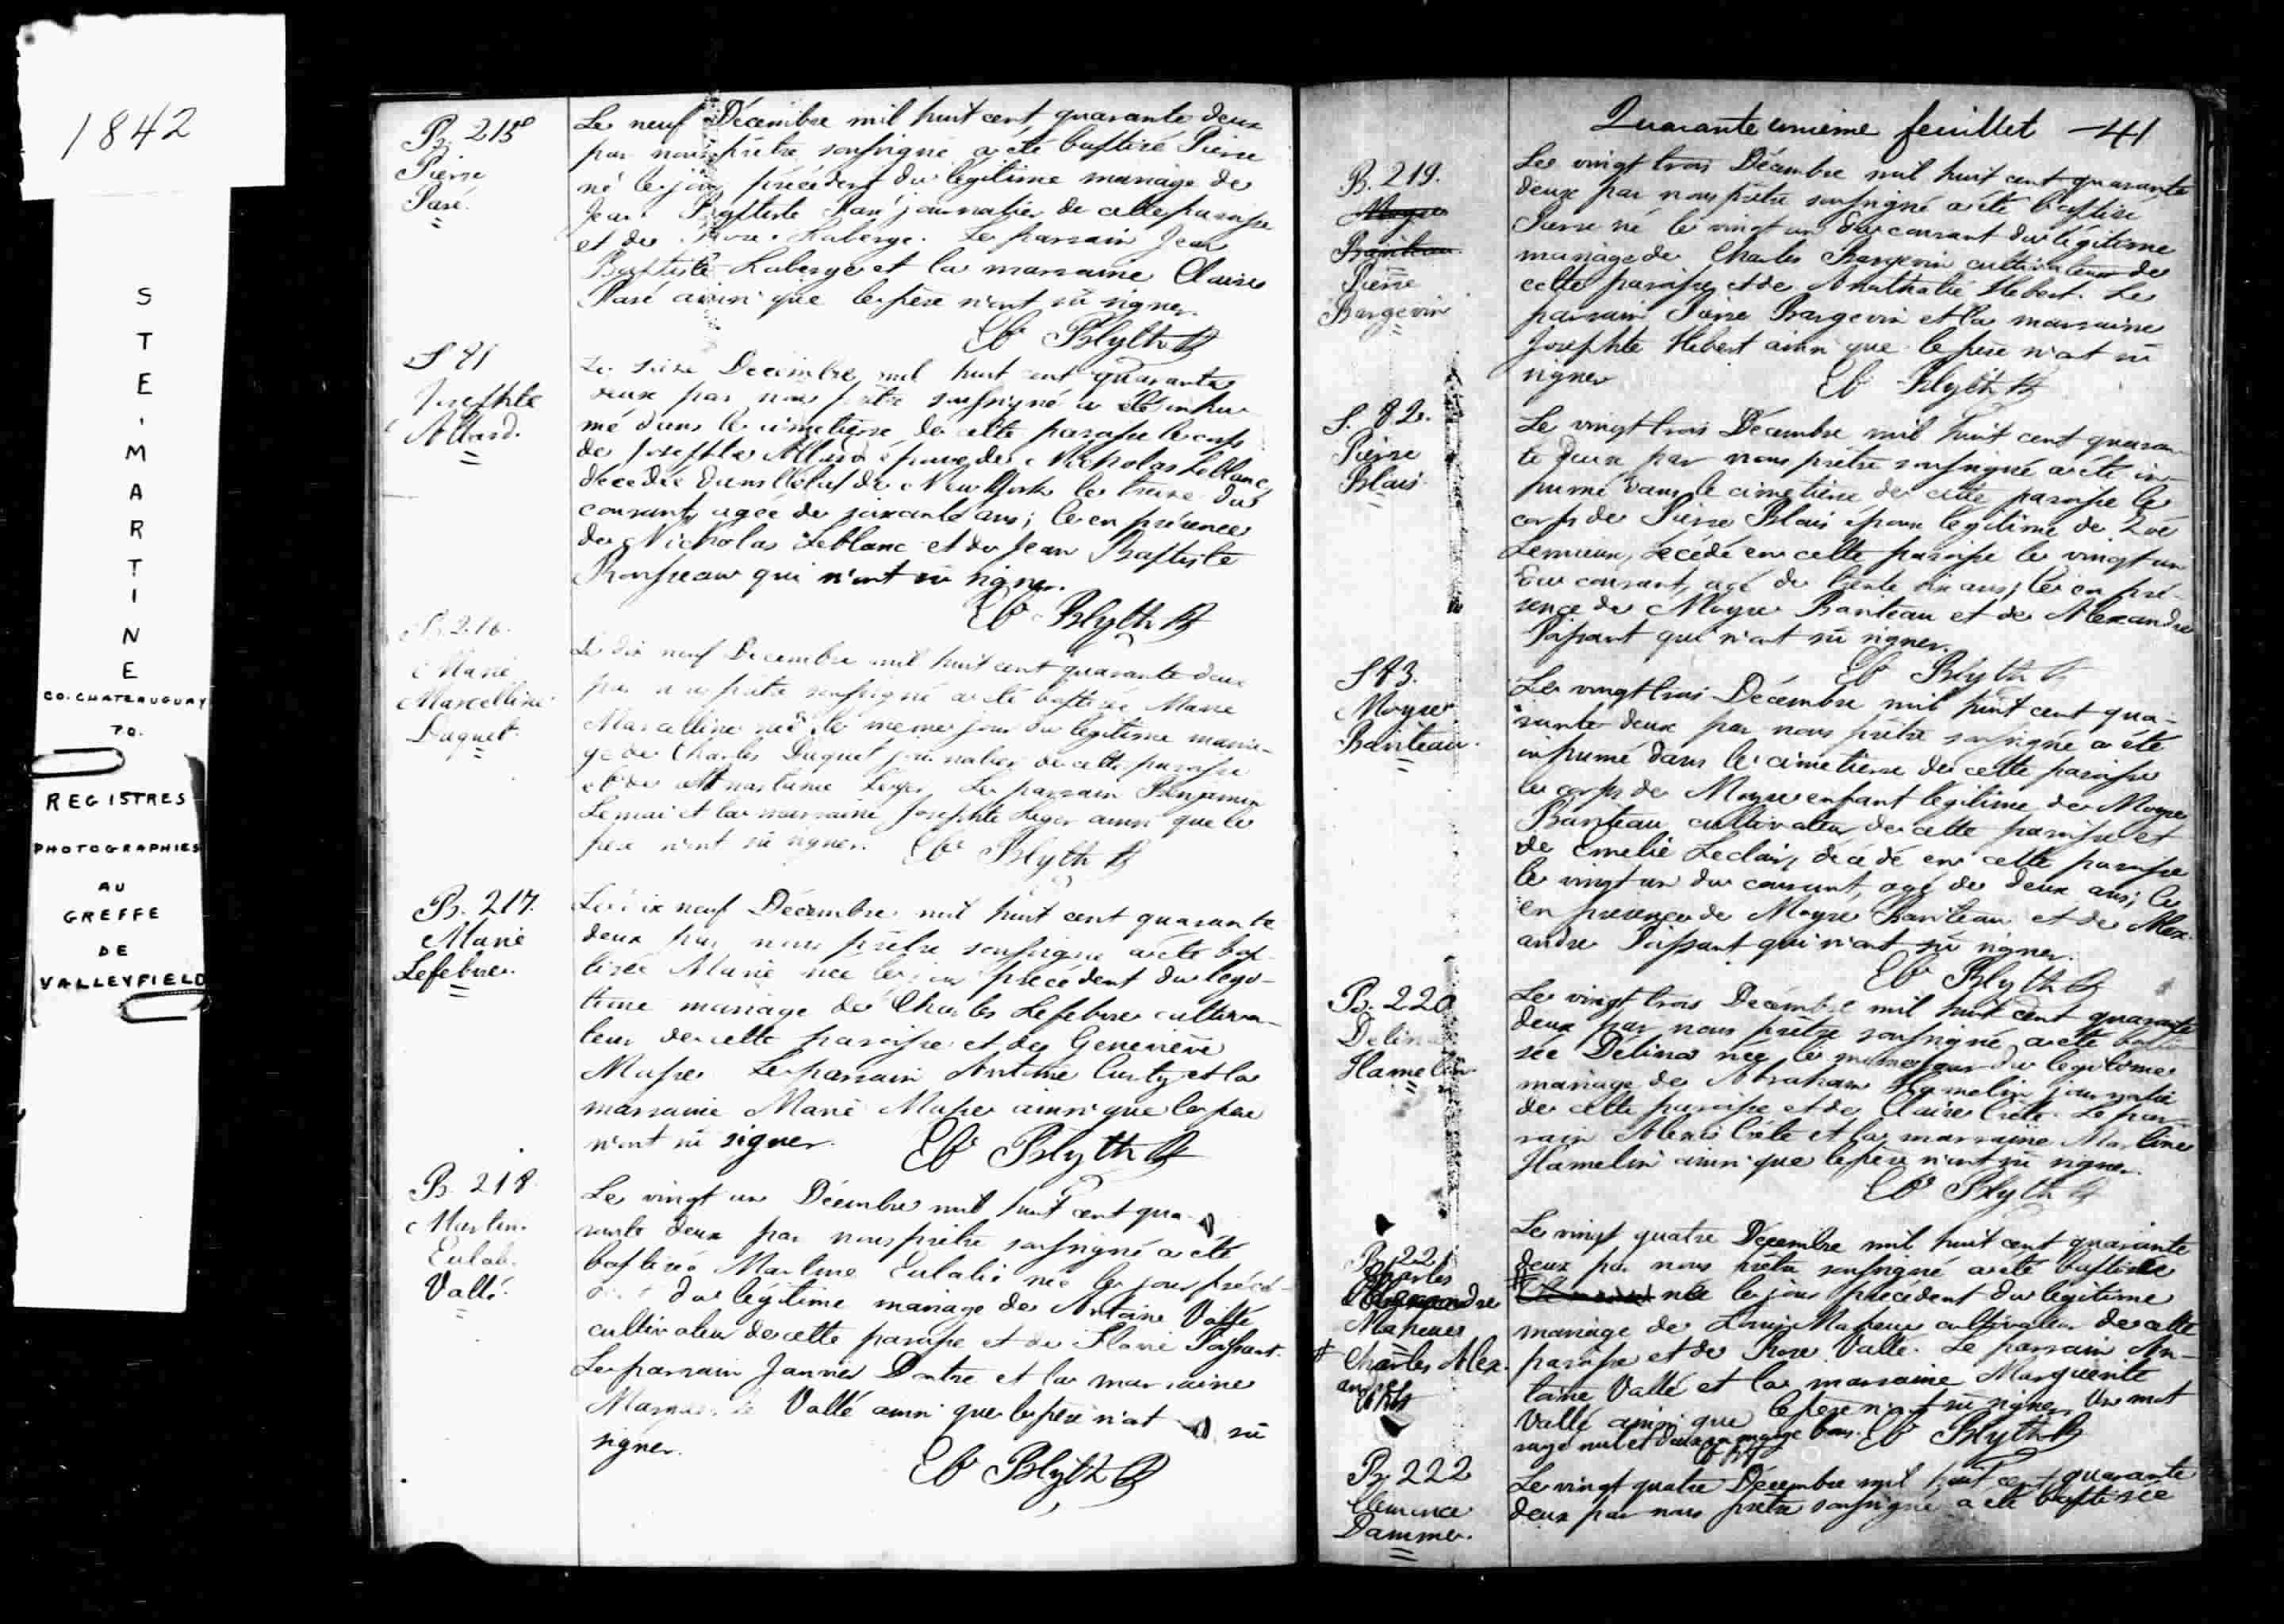 1842
STE. MARTINE
CO. CHATEAUGUAY
70.
REGISTRES
PHOTOGRAPHIES
AU
GREFFE
DE
VALLEYFIELD
B. 215
Pierre
Paré.
Le neuf Décembre mil huit cent quarante deux
par nous prêtre soussigné a été baptisé Pierre
né le jour précédent du légitime mariage de
Jean Baptiste Paré journalier de cette paroisse
et de Laberge. Le parrain Jean
Baptiste Laberge et la marraine Claire
Paré ainsi que le père n'ont sû signer.
Eb Blyth Ptr
S 81
Josephte
Allard.
Le seize Décembre mil huit cent quarante
deux par nous prêtre soussigné a été inhu-
mé dans le cimetière de cette paroisse le corps
de Josephte Allard épouse de Nicholas Leblanc,
décédée dans l'état de New York le treize du
courant, agée de soixante ans; ce en présence
de Nicholas Leblanc et de Jean Baptiste
qui n'ont sû signer.
Eb Blyth Ptr
B. 216.
Marie
Marcelline
Duquet.
Le dix neuf Décembre mil huit cent quarante deux
par nous prêtre soussigné a été baptisée Marie
Marcelline née le meme jour du légitime maria-
ge de Charles Duquet journalier de cette paroisse
et de Leger. Le parrain Benjamin
Lemai et la marraine Josephte Leger ainsi que le
père n'ont sû signer. Eb Blyth Ptr
B. 217.
Marie
Lefebvre.
Le dix neuf Décembre mil huit cent quarante
deux par nous prêtre soussigné a été bap-
tisée Marie née le jour précédent du légi-
time mariage de Charles Lefebvre cultiva-
teur de cette paroisse et de Geneviève
Le parrain Antoine et la
marraine Marie ainsi que le père
n'ont sû signer. Eb Blyth Ptr
B. 218.
Martine
Eulalie
Vallé.
Le vingt un Décembre mil huit cent qua-
rante deux par nous prêtre soussigné a été
baptisée Martine Eulalie née le jour précé-
dent du légitime mariage de Antoine Vallé
cultivateur de cette paroisse et de Flavie Poissant.
Le parrain Janvier et la marraine
Vallé ainsi que le père n'ont sû
signer. Eb Blyth Ptr
Quarante unieme feuillet -41
B. 219.
Moyse
Bariteau
Pierre
Bargevin
Le vingt trois Décembre mil huit cent quarante
deux par nous prêtre soussigné a été baptisé
Pierre né le vingt un du courant du légitime
mariage de Charles Bargevin cultivateur de
cette paroisse et de Hebert. Le
parrain Pierre Bargevin et la marraine
Josephte Hebert ainsi que le père n'ont sû
signer Eb Blyth Ptr
S. 82.
Pierre
Blais
Le vingt trois Décembre mil huit cent quaran-
te deux par nous prêtre soussigné a été in-
humé dans le cimetière de cette paroisse le
corps de Pierre Blais époux légitime de Zoé
Lemieux, décédé en cette paroisse le vingt un
du courant, agé de trente six ans; ce en pré-
sence de Moyse Bariteau et de Alexandre
Poissant qui n'ont sû signer.
Eb Blyth Ptr
S 83.
Moyse
Bariteau.
Le vingt trois Décembre mil huit cent qua-
rante deux par nous prêtre soussigné a été
inhumé dans le cimetiere de cette paroisse
le corps de Moyse enfant légitime de Moyse
Bariteau cultivateur de cette paroisse et
de Emelie Leclair, décédé en cette paroisse
le vingt un du courant, agé de deux ans; ce
en presence de Moyse Bariteau et de Alex-
andre Poissant qui n'ont sû signer.
Eb Blyth Ptr
B. 220
Délina
Hamelin
Le vingt trois Décembre mil huit cent quarante
deux par nous prêtre soussigné a été bapti-
sée Délina née le meme jour du légitime
mariage de Abraham Hamelin journalier
de cette paroisse et de Claire Crète. Le par-
rain Alexis Crète et la marraine Martine
Hamelin ainsi que le père n'ont sû signer.
Eb Blyth Ptr
B. 221
Charles
Alexandre
Maheux
# Charles Alex-
andre
Le vingt quatre Décembre mil huit cent quarante
deux par nous prêtre soussigné a été baptisé
# né le jour precedent du légitime
mariage de Louis Maheux cultivateur de cette
paroisse et de Rose Vallé. Le parrain An-
toine Vallé et la marraine Marguerite
Vallé ainsi que le père n'ont sû signer. Un mot
rayé nul et deux en marge bons. Eb Blyth Ptr
B. 222
Clemence
Le vingt quatre Décembre mil huit cent quarante
deux par nous prêtre soussigné a été baptisée